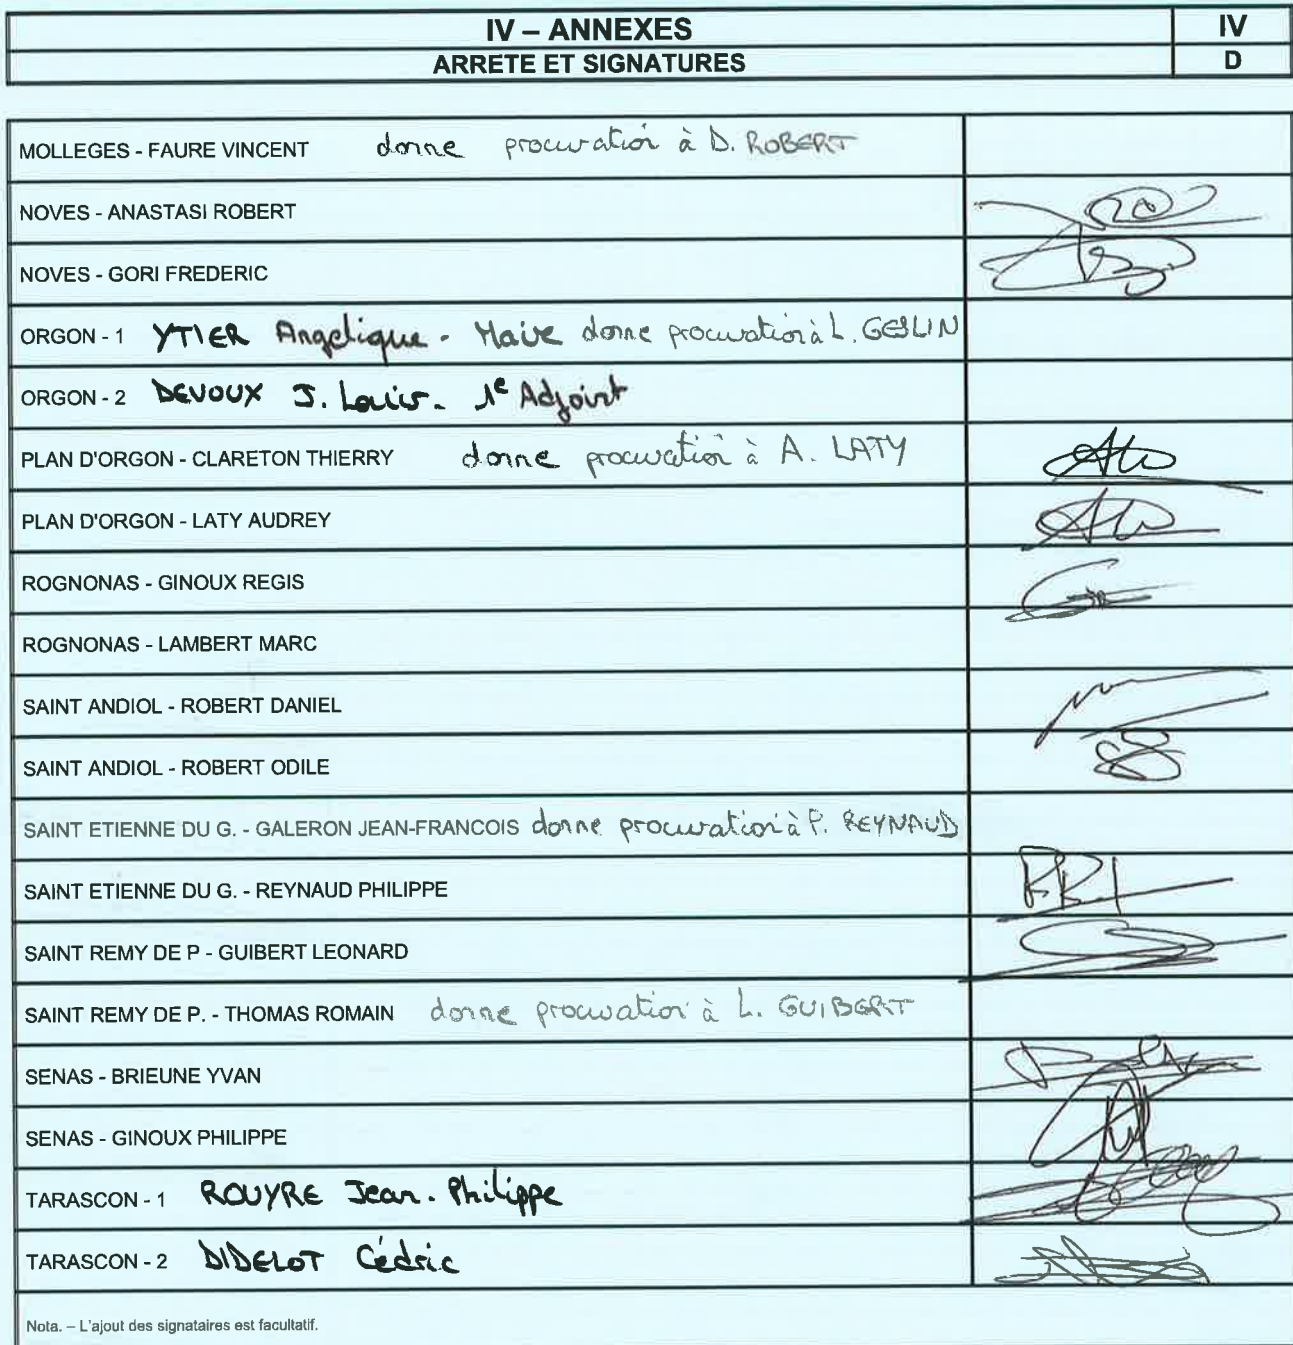 IV – ANNEXES IV
ARRETE ET SIGNATURES D
MOLLEGES - FAURE VINCENT donne procuration à D. ROBERT
NOVES - ANASTASI ROBERT
NOVES - GORI FREDERIC
ORGON - 1 YTIER Angelique - Maire donne procuration à L. GESLIN
ORGON - 2 DEVOUX J. Louis - 1e Adjoint
PLAN D'ORGON - CLARETON THIERRY donne procuration à A. LATY
PLAN D'ORGON - LATY AUDREY
ROGNONAS - GINOUX REGIS
ROGNONAS - LAMBERT MARC
SAINT ANDIOL - ROBERT DANIEL
SAINT ANDIOL - ROBERT ODILE
SAINT ETIENNE DU G. - GALERON JEAN-FRANCOIS donne procuration à P. REYNAUD
SAINT ETIENNE DU G. - REYNAUD PHILIPPE
SAINT REMY DE P - GUIBERT LEONARD
SAINT REMY DE P. - THOMAS ROMAIN donne procuration à L. GUIBERT
SENAS - BRIEUNE YVAN
SENAS - GINOUX PHILIPPE
TARASCON - 1 ROUYRE Jean-Philippe
TARASCON - 2 DIDELOT Cédric
Nota. – L'ajout des signataires est facultatif.